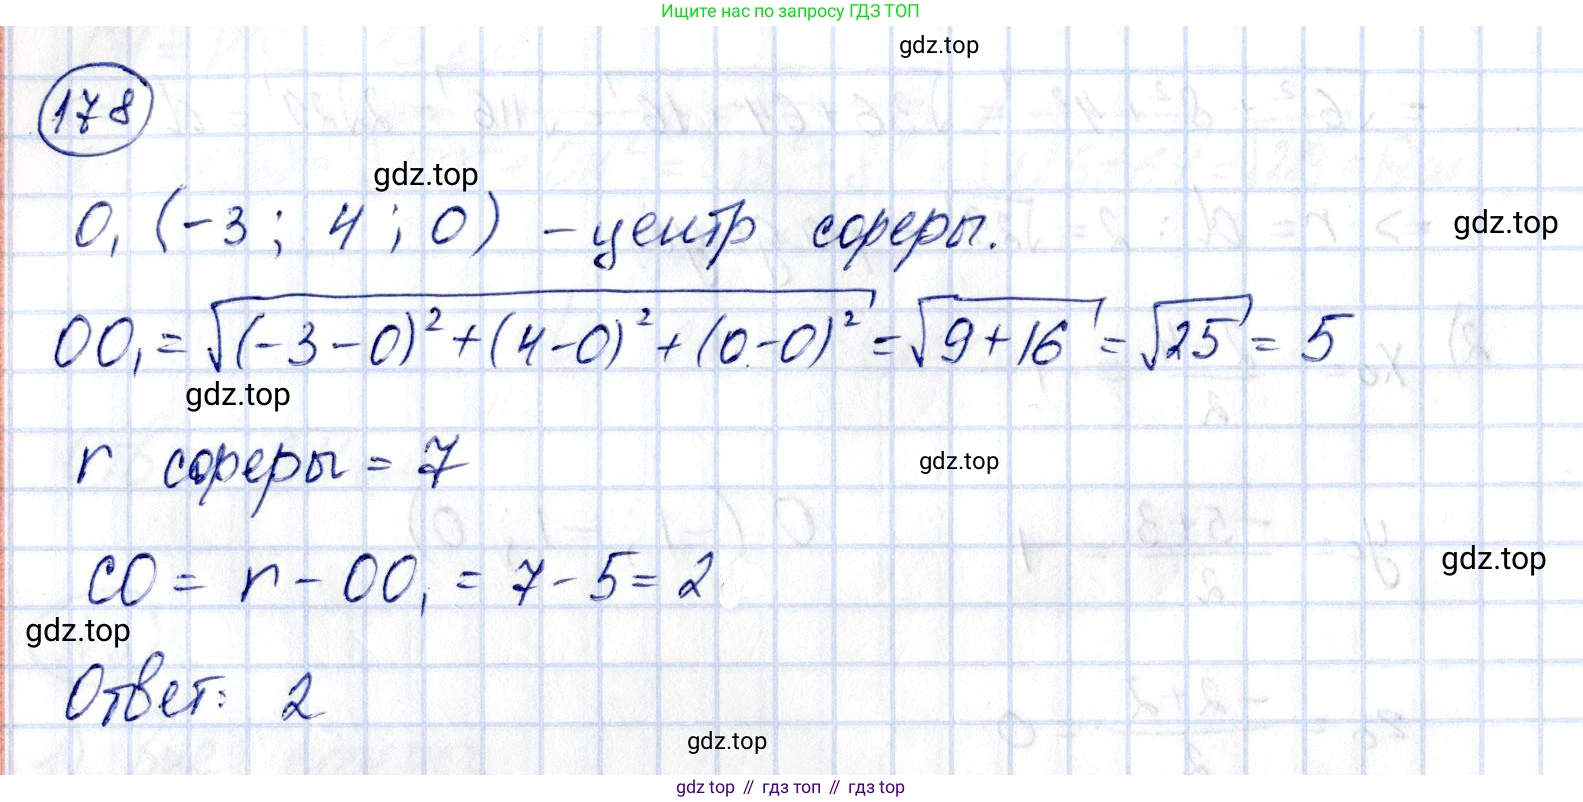 Ищите нас по запросу ГДЗ ТОП
gdz.top
178
gdz.top
O₁ (-3 ; 4 ; 0) - центр сферы.
gdz.top
OO₁ = √((-3-0)² + (4-0)² + (0-0)²) = √(9+16) = √25 = 5
gdz.top
r сферы = 7
gdz.top
CO = r - OO₁ = 7 - 5 = 2
gdz.top
gdz.top
Ответ: 2
gdz.top
gdz top // гдз топ // gdz top